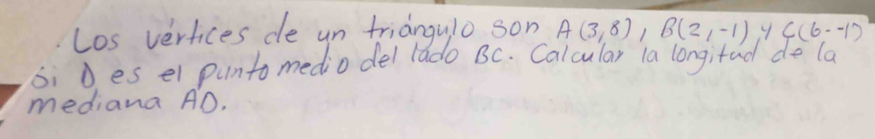 Los vértices de un triángulo son A(3,8), B(2,-1) y C(6--1)
si D es el punto medio del lado BC. Calcular la longitud de la
mediana AD.